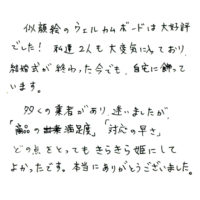 似顔絵のウェルカムボードは大好評
でした! 私達2人も大変気に入っており
結婚式が終わった今でも、自宅に飾って
います。
多くの業者があり、迷いましたが
「商品の出来満足度」「対応の早さ」
どの点をとってもきらきら姫にして
よかったです。本当にありがとうございました。